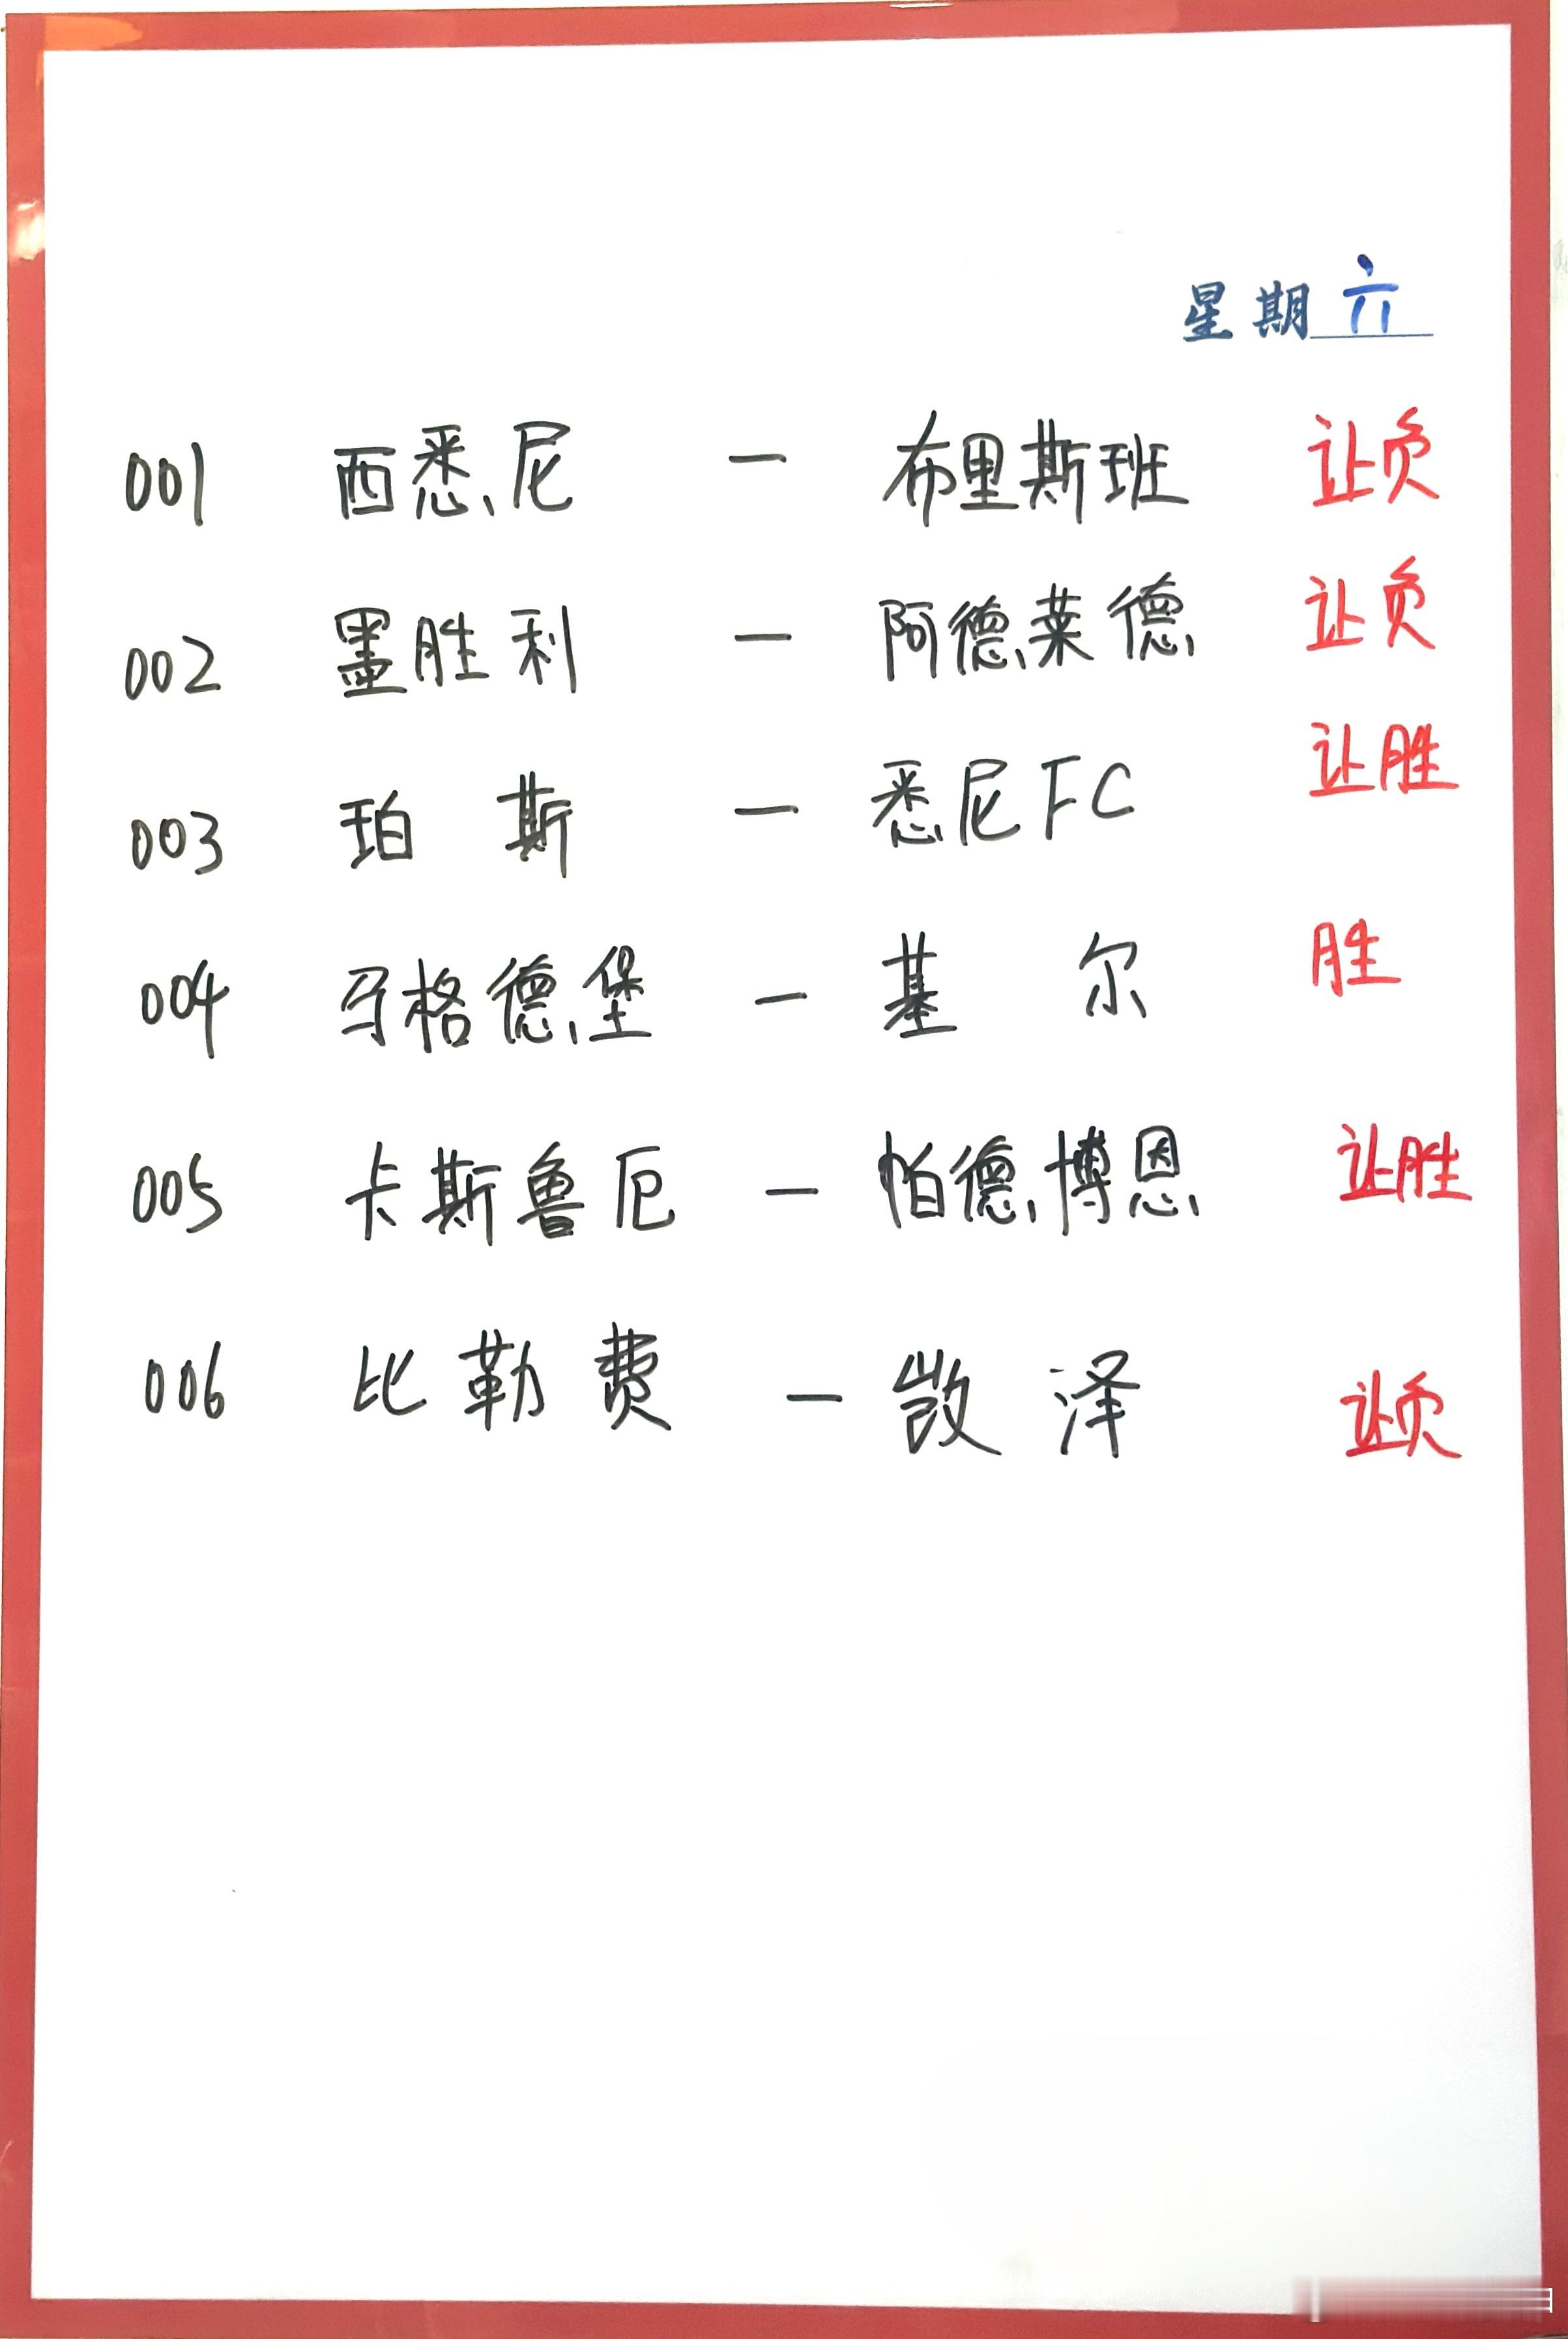 星期六
001 西悉尼 — 布里斯班 让负
002 墨胜利 — 阿德莱德 让负
003 珀斯 — 悉尼FC 让胜
004 马格德堡 — 基尔 胜
005 卡斯鲁厄 — 帕德博恩 让胜
006 比勒费 — 凯泽 让负